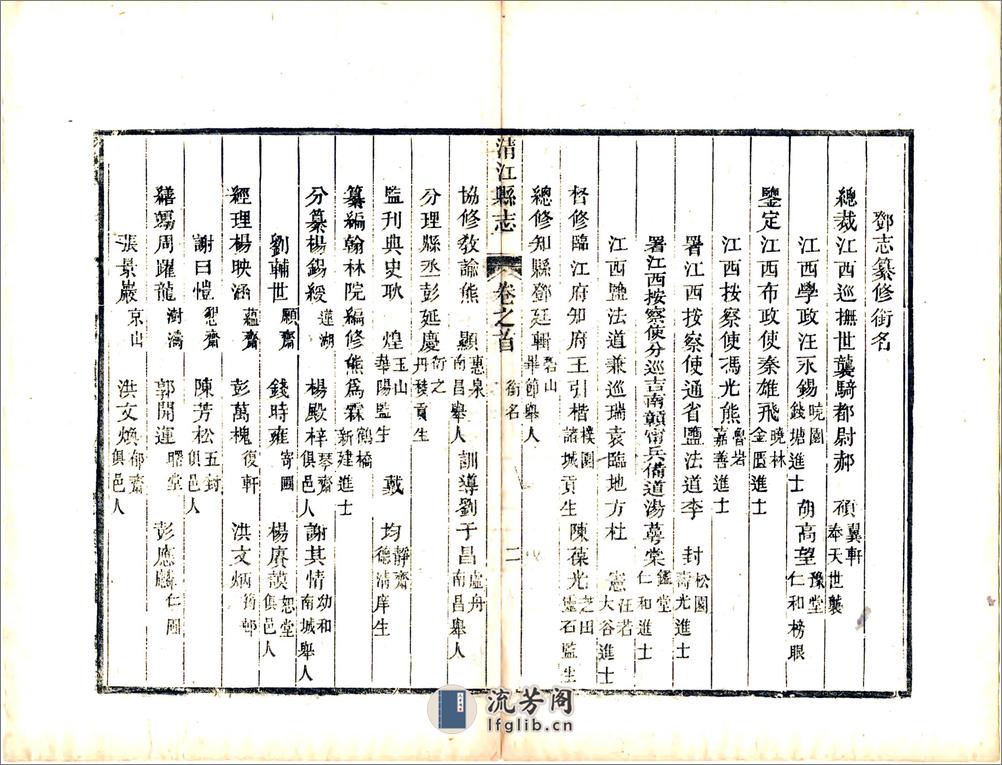 鄧志纂修銜名
總裁江西巡撫世襲騎都尉郝　碩翼軒奉天世襲
江西學政汪永錫曉園錢塘進士　胡高望豫堂仁和榜眼
鑒定江西布政使秦雄飛曉林金匱進士
江西按察使馮光熊魯岩嘉善進士
署江西按察使通省鹽法道李　封松園壽光進士
署江西按察使分巡吉南贛甯兵備道湯萼棠鑑堂仁和進士
江西鹽法道兼巡瑞袁臨地方杜　憲汪若大谷進士
督修臨江府知府王引楷樸園諸城貢生　陳葆光芝田靈石監生
總修知縣鄧廷輯山畢節舉人
清江縣志　卷之首　銜名　二
協修教諭熊　顯惠泉南昌舉人　訓導劉于昌虛舟南昌舉人
分理縣丞彭延慶衍之丹稜貢生
監刊典史耿　煌玉山華陽監生　戴　均靜齋德清庠生
纂編翰林院編修熊為霖鶴橋新建進士
分纂楊錫綬蓮湖　楊殿梓琴齋俱邑人　謝其情幼和南城舉人
劉輔世願齋　錢時雍寄圃　楊賡謨恕堂俱邑人
經理楊映涵蘊齋　彭萬槐復軒　洪文炳筠邨
謝曰愷恕齋　陳芳松五封俱邑人
繕寫周躍龍澍濤　郭開運曜堂　彭應麟仁圃
張景巖京山　洪文煥郁齋俱邑人
流芳阁
lfglib.cn